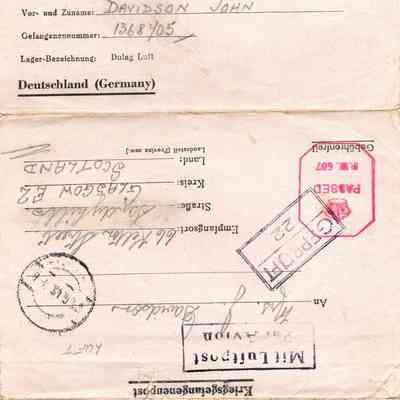 Vor- und Zuname: DAVIDSON JOHN
Gefangenennummer: 1368/05
Lager-Bezeichnung: Dulag Luft
Deutschland (Germany)
Kriegsgefangenenpost
Mit Luftpost
PAR AVION
LUFT
An Mrs. J. Davidson
GEPRÜFT
22
Empfangsort: 66 Street
Straße:
Kreis: GLASGOW E2
Land: SCOTLAND
Landesteil (Provinz usw.)
Gebührenfrei
PASSED
P.W. 607